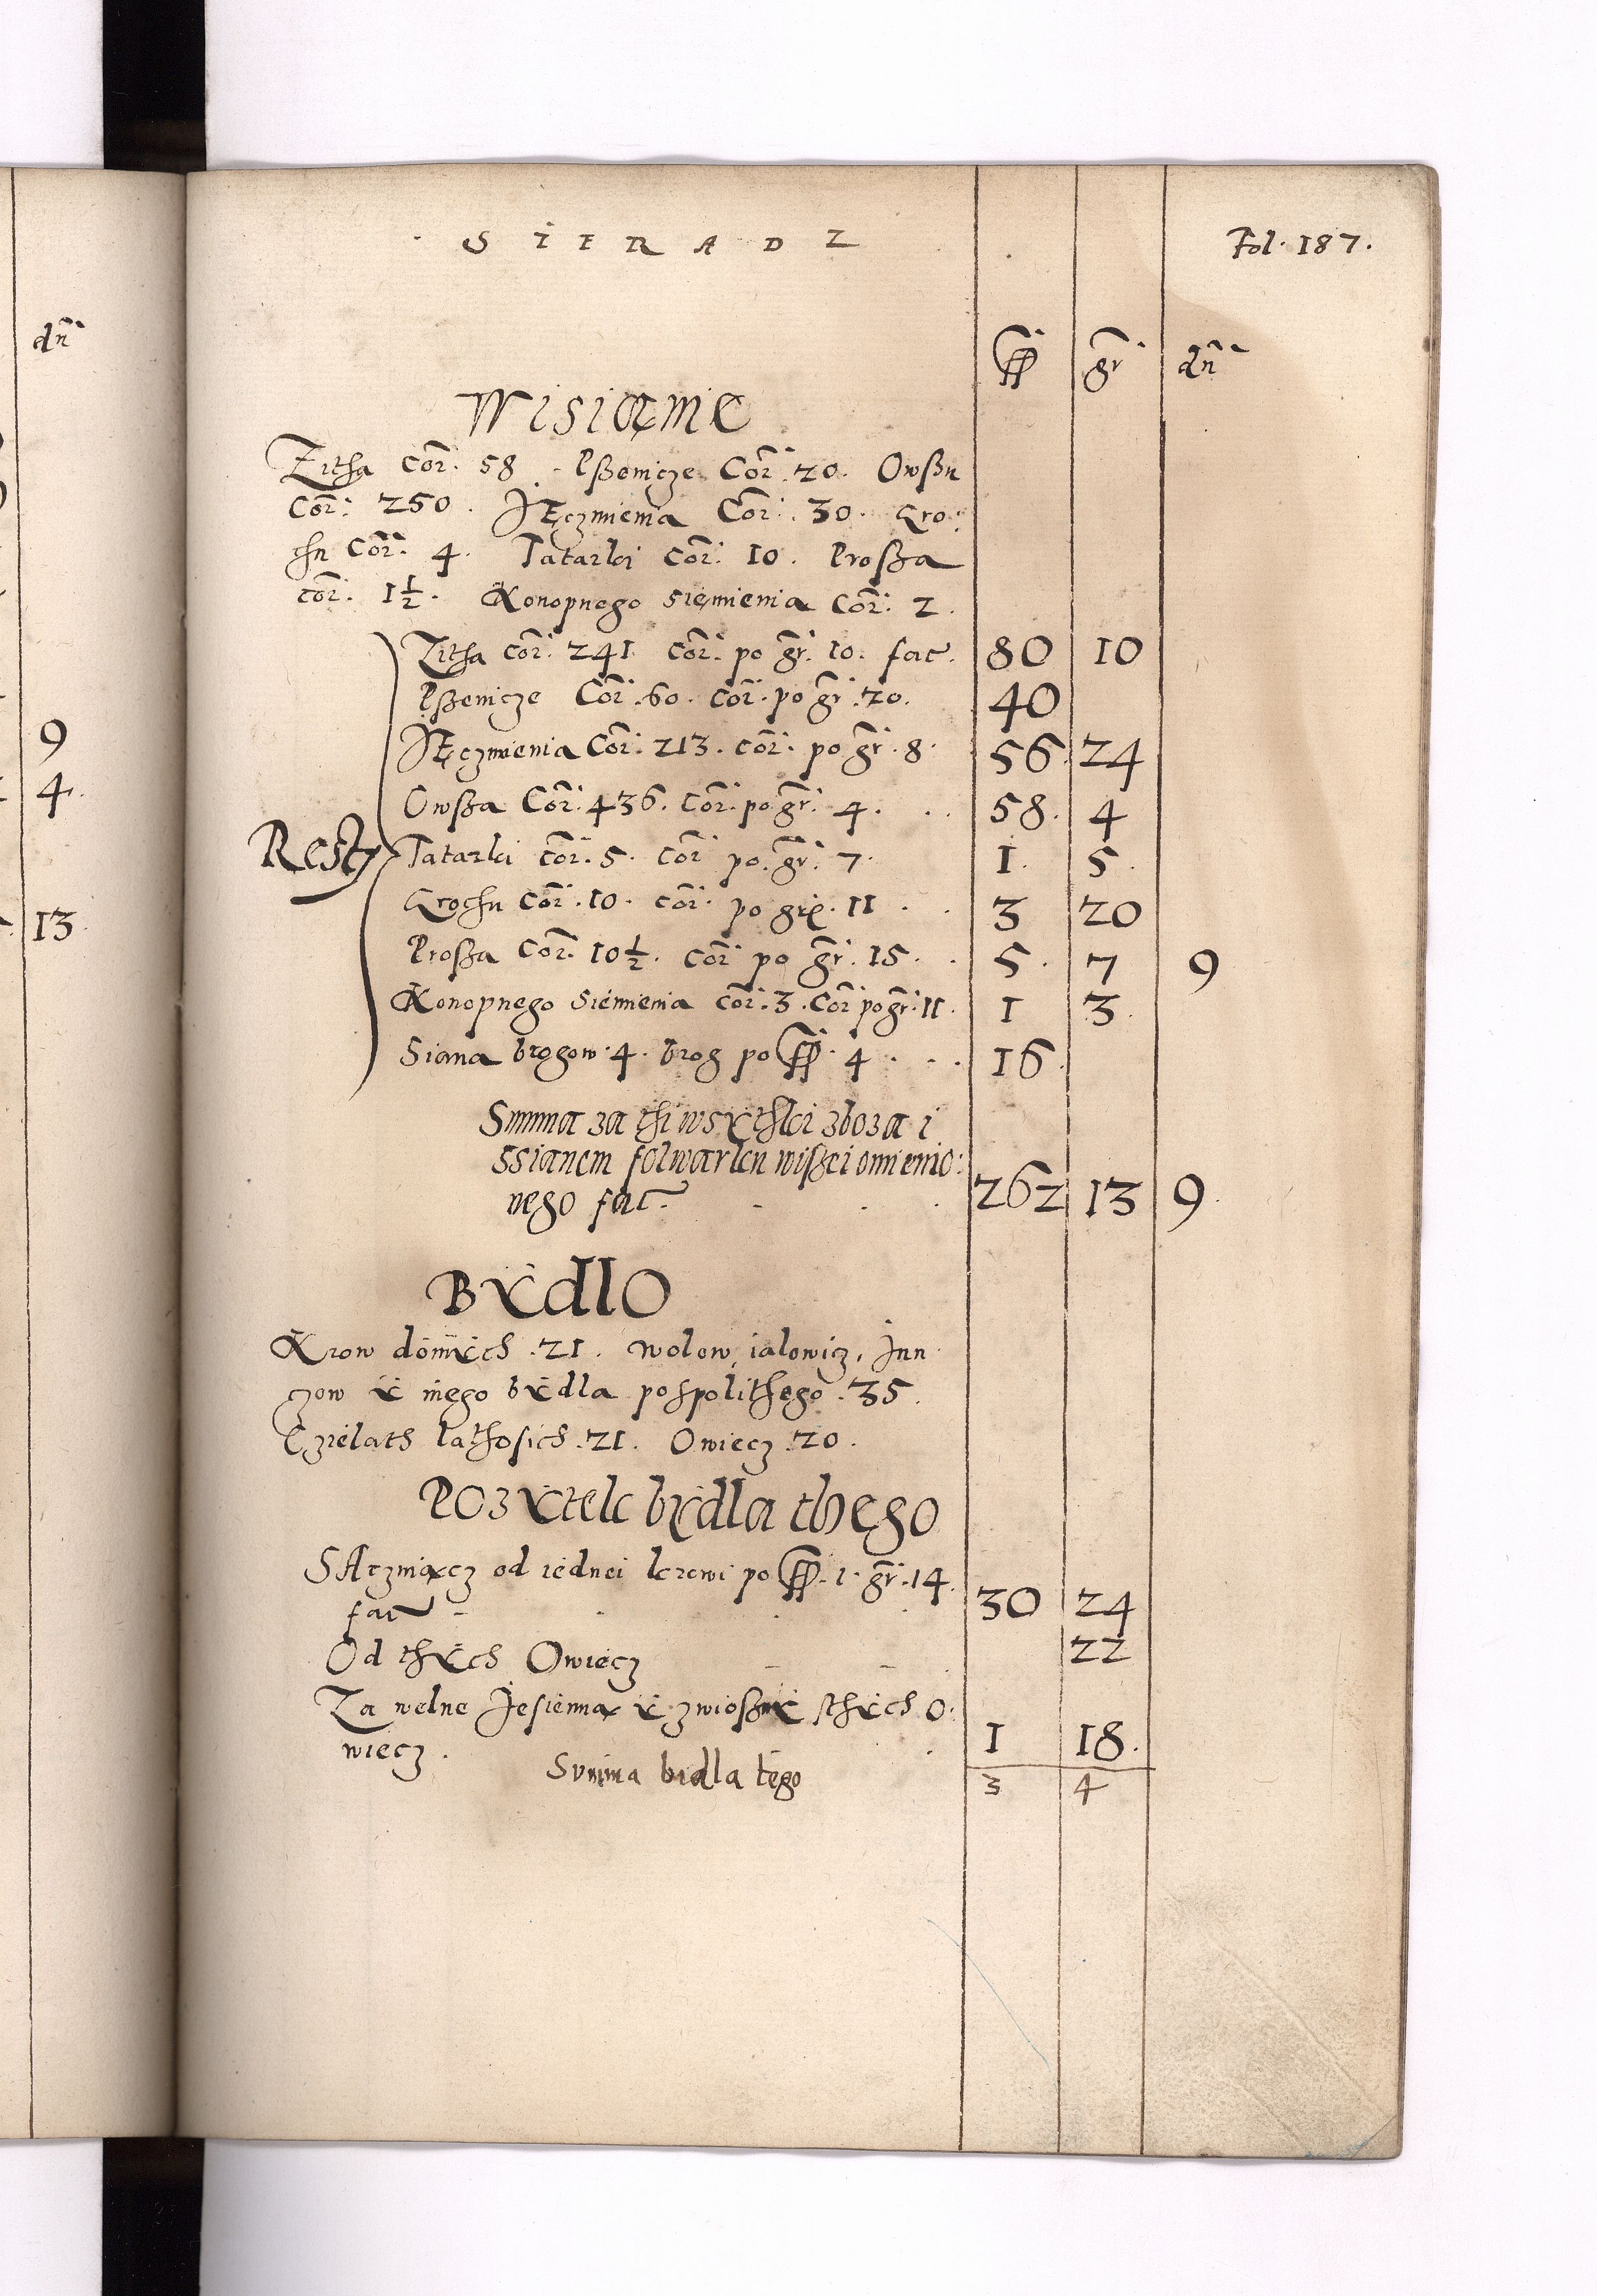 dn̄
9
4.
13.
SIERADZ
Fol. 187.
ff gr̄ dn̄
Wisianie
Zitha Cor̄. 58. Pßenicze Cor̄. 20. Owßu
Cor̄. 250. JĘczmienia Cor̄. 30. Gro:
chu Cor̄. 4. Tatarki Cor̄. 10. Proßa
Cor̄. 1½. Konopnego Sięmienia Cor̄. 2.
Zitha Cor̄. 241 Cor̄. po gr̄. 10. fac̄. 80 10
Pßenicze Cor̄. 60. Cor̄. po gr̄. 20. 40
JĘczmienia Cor̄. 213. Cor̄. po gr̄. 8. 56 24
Owßa Cor̄. 436. Cor̄. po gr̄. 4. 58. 4
Resty Tatarki Cor̄. 5. Cor̄ po. gr̄. 7. 1. 5.
Grochu Cor̄. 10. Cor̄. po gr. 11 3 20
Proßa Cor̄. 10½. Cor̄ po gr̄. 15. 5. 7 9
Konopnego Siemienia Cor̄. 3. Cor̄ po gr̄. 11. 1 3.
Siana brogow. 4. brog po ff. 4 16.
Summa za thi wsÿthki zboza i
ssianem folwarku wißei omienio:
nego fac̄ 262 13 9.
BÿdlO
Krow doinÿch. 21. wolow, ialowicz, Jun
czow ÿ inego bÿdla pospolithego. 35.
Czielath lathosich. 21. Owiecz. 20.
POzÿtek bÿdla thego
SAczuiącz od iednei krowi po ff. 1. gr̄. 14.
fac̄ 30 24
Od thÿch Owiecz 22
Za welne Jesienną ÿ zwioßnÿ sthÿch O:
wiecz. 1 18.
Summa bidla tego 3 4